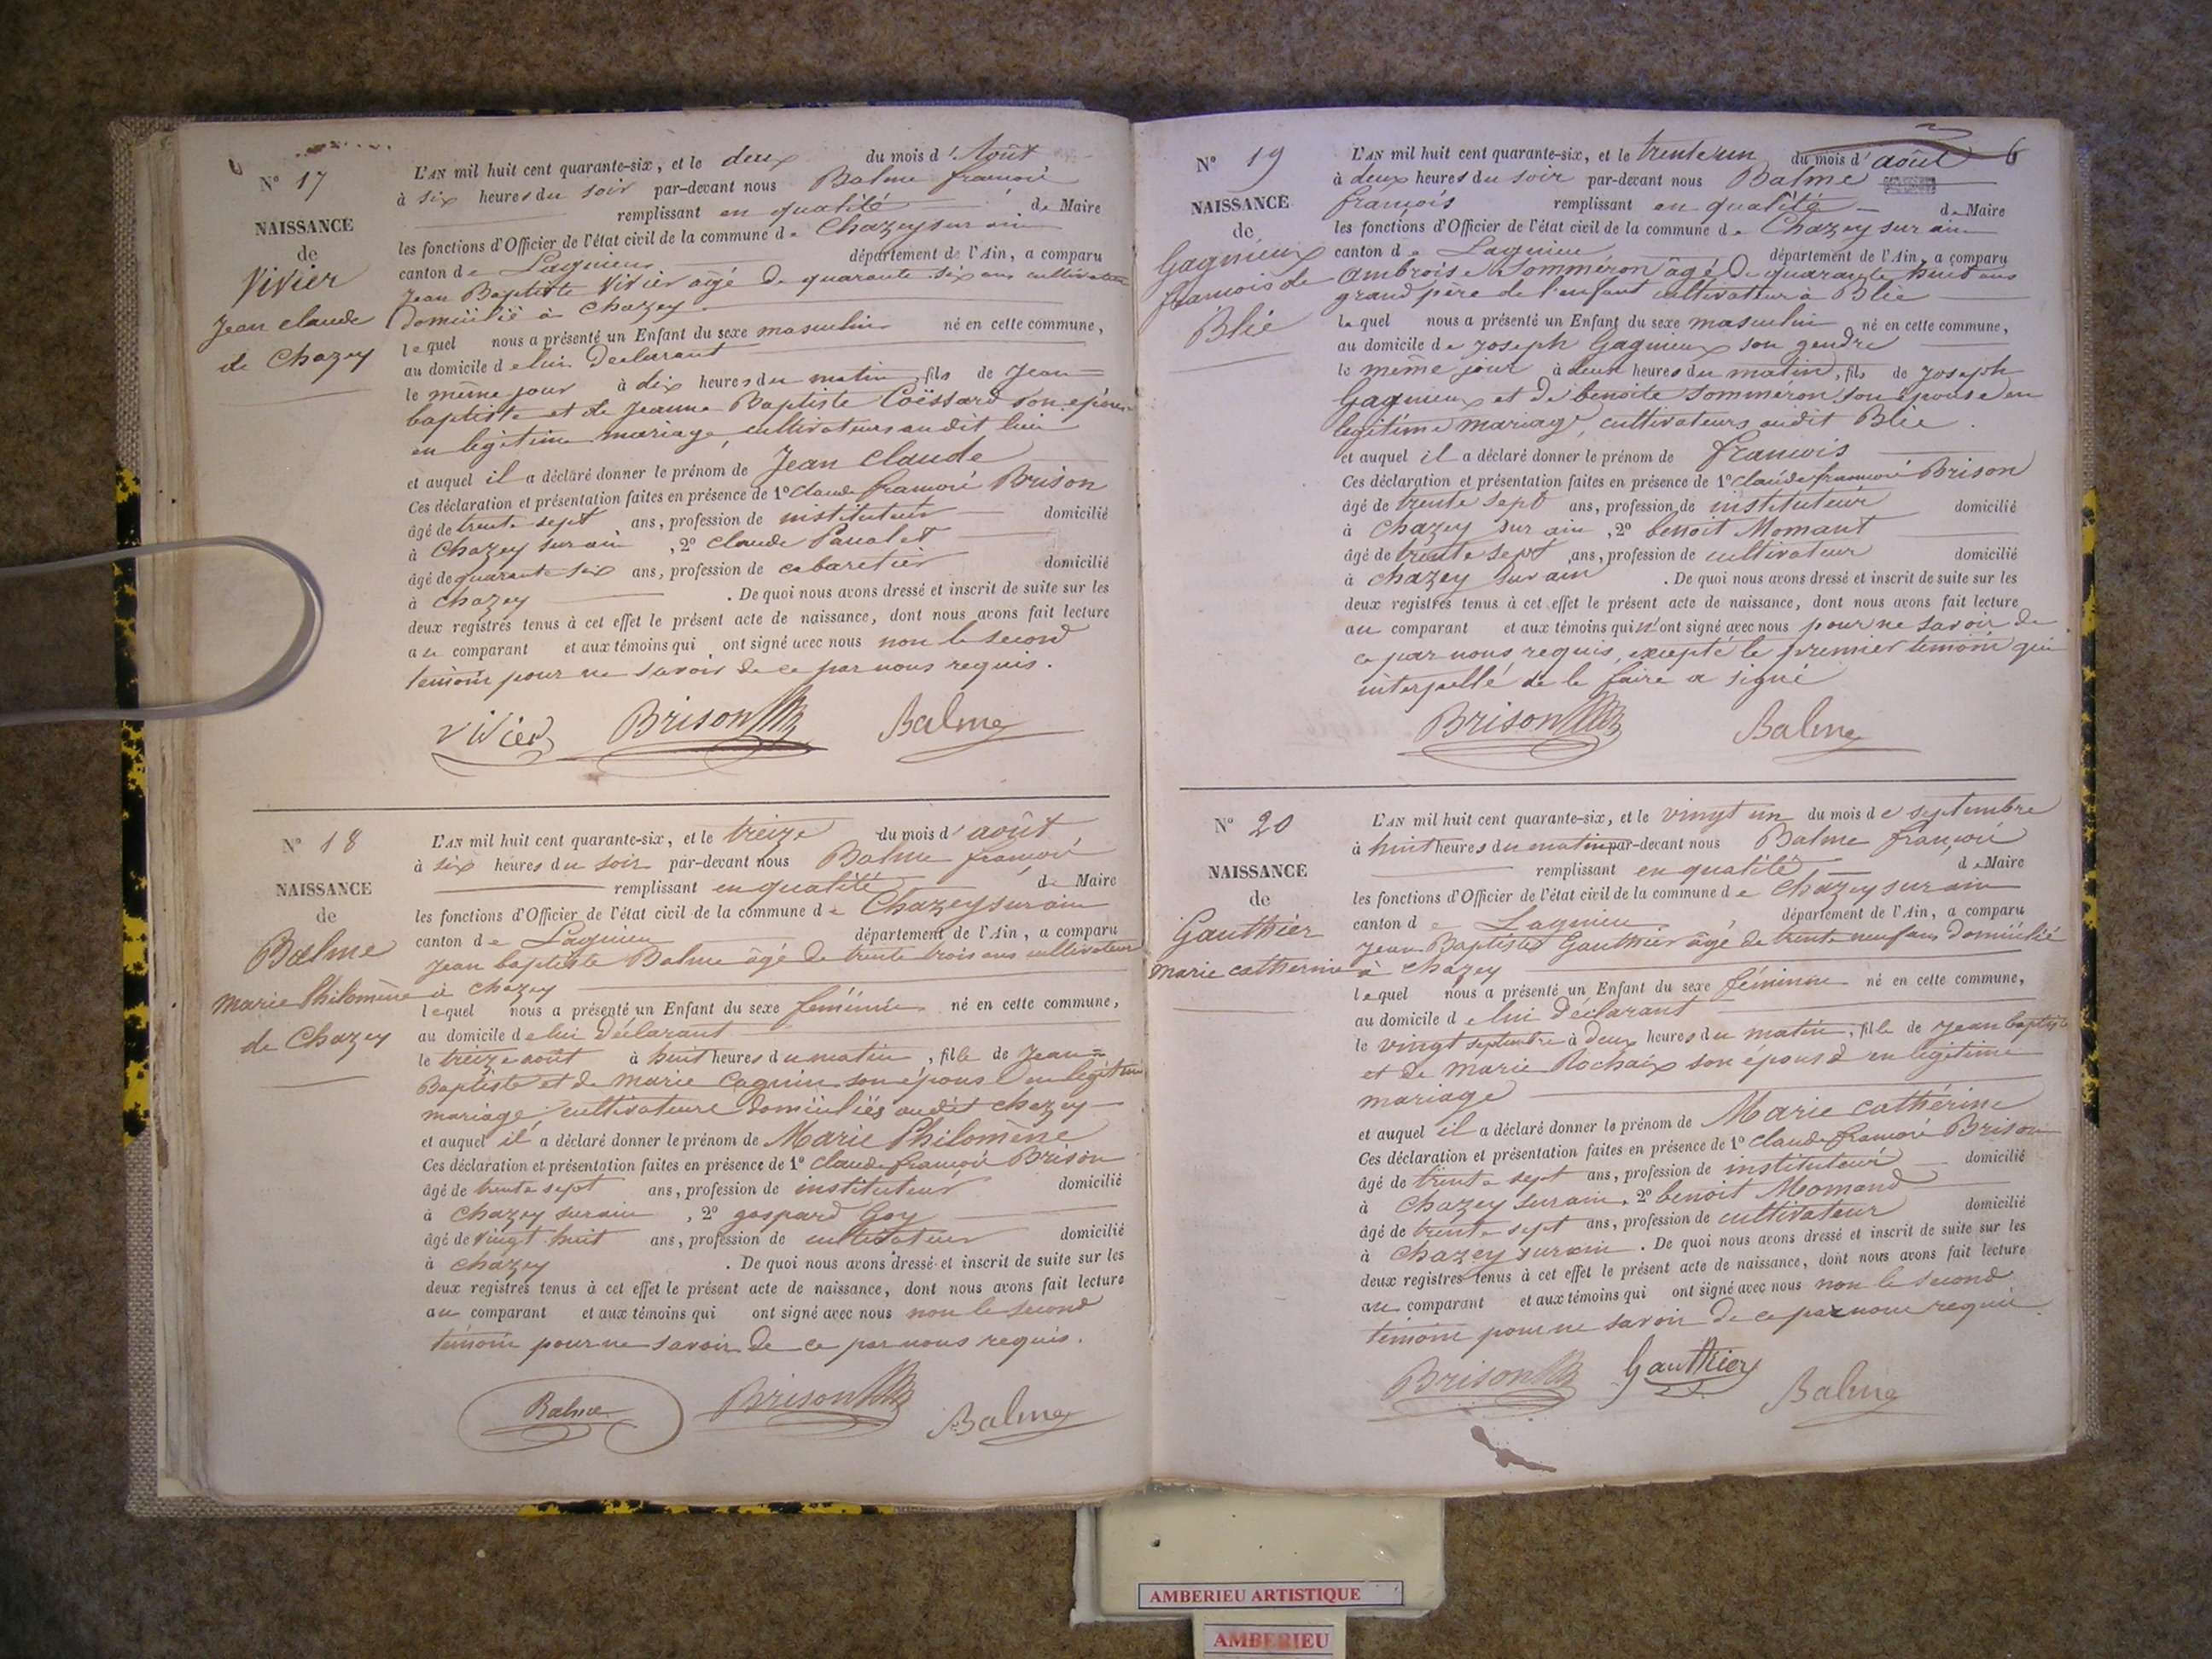 N° 17
NAISSANCE
de
Vivier
Jean Claude
de Chazey
L'AN mil huit cent quarante-six, et le deux du mois d'Août
à six heures du soir par-devant nous Balme françois
remplissant en qualité de Maire
les fonctions d'Officier de l'état civil de la commune de Chazey sur ain
canton de Lagnieu département de l'Ain, a comparu
Jean Baptiste Vivier âgé de quarante-six ans cultivateur
domicilié à Chazey
lequel nous a présenté un Enfant du sexe masculin né en cette commune,
au domicile de lui Déclarant
le même jour à dix heures du matin, fils de Jean=
baptiste et de Jeanne Baptiste Coëssard son épouse
en légitime mariage, cultivateurs audit lieu
et auquel il a déclaré donner le prénom de Jean Claude
Ces déclaration et présentation faites en présence de 1° Claude françois Brison
âgé de trente-sept ans, profession de instituteur domicilié
à Chazey sur ain, 2° Claude
âgé de quarante-six ans, profession de cabaretier domicilié
à Chazey . De quoi nous avons dressé et inscrit de suite sur les
deux registres tenus à cet effet le présent acte de naissance, dont nous avons fait lecture
au comparant et aux témoins qui ont signé avec nous non le second
témoin pour ne savoir de ce par nous requis.
Vivier Brison Balme
N° 18
NAISSANCE
de
Balme
Marie Philomène
de Chazey
L'AN mil huit cent quarante-six, et le treize du mois d'août
à six heures du soir par-devant nous Balme françois
remplissant en qualité de Maire
les fonctions d'Officier de l'état civil de la commune de Chazey sur ain
canton de Lagnieu département de l'Ain, a comparu
Jean baptiste Balme âgé de trente trois ans cultivateur
à Chazey
lequel nous a présenté un Enfant du sexe féminin né en cette commune,
au domicile de lui Déclarant
le treize août à huit heures du matin, fille de Jean=
Baptiste et de Marie Cagnin son épouse en légitime
mariage, cultivateurs domiciliés audit Chazey
et auquel il a déclaré donner le prénom de Marie Philomène
Ces déclaration et présentation faites en présence de 1° Claude françois Brison
âgé de trente sept ans, profession de instituteur domicilié
à Chazey sur ain, 2° gaspard Goy
âgé de vingt huit ans, profession de cultivateur domicilié
à Chazey . De quoi nous avons dressé et inscrit de suite sur les
deux registres tenus à cet effet le présent acte de naissance, dont nous avons fait lecture
au comparant et aux témoins qui ont signé avec nous non le second
témoin pour ne savoir de ce par nous requis.
Balme Brison Balme
6
N° 19
NAISSANCE
de
Gagnieux
francois de
Blie
L'AN mil huit cent quarante-six, et le trente un du mois d'août
à deux heures du soir par-devant nous Balme
françois remplissant en qualité de Maire
les fonctions d'Officier de l'état civil de la commune de Chazey sur ain
canton de Lagnieu département de l'Ain, a comparu
Ambroise Somméron âgé de quarante huit ans
grand père de l'enfant cultivateur à Blie
lequel nous a présenté un Enfant du sexe masculin né en cette commune,
au domicile de Joseph Gagnieux son gendre
le même jour à deux heures du matin, fils de Joseph
Gagnieux et de benoite Somméron son épouse en
légitime mariage, cultivateurs audit Blie.
et auquel il a déclaré donner le prénom de francois
Ces déclaration et présentation faites en présence de 1° Claude francois Brison
âgé de trente sept ans, profession de instituteur domicilié
à Chazey sur ain, 2° benoit Momant
âgé de trente sept ans, profession de cultivateur domicilié
à Chazey sur ain . De quoi nous avons dressé et inscrit de suite sur les
deux registres tenus à cet effet le présent acte de naissance, dont nous avons fait lecture
au comparant et aux témoins qui n'ont signé avec nous pour ne savoir de
ce par nous requis, excepté le premier témoin qui
interpellé de le faire a signé
Brison Balme
N° 20
NAISSANCE
de
Gauthier
Marie catherine
L'AN mil huit cent quarante-six, et le vingt un du mois de septembre
à huit heures du matin par-devant nous Balme françois
remplissant en qualité de Maire
les fonctions d'Officier de l'état civil de la commune de Chazey sur ain
canton de Lagnieu, département de l'Ain, a comparu
Jean Baptiste Gauthier âgé de trente neuf ans domicilié
à Chazey
lequel nous a présenté un Enfant du sexe féminin né en cette commune,
au domicile de lui Déclarant
le vingt septembre à deux heures du matin, fille de Jean baptiste
et de Marie Rochaix son épouse en légitime
mariage
et auquel il a déclaré donner le prénom de Marie Cathérine
Ces déclaration et présentation faites en présence de 1° Claude francois Brison
âgé de trente sept ans, profession de instituteur domicilié
à Chazey sur ain, 2° benoit Momand
âgé de trente sept ans, profession de cultivateur domicilié
à Chazey sur ain. De quoi nous avons dressé et inscrit de suite sur les
deux registres tenus à cet effet le présent acte de naissance, dont nous avons fait lecture
au comparant et aux témoins qui ont signé avec nous non le second
témoin pour ne savoir de ce par nous requis
Brison Gauthier Balme
AMBERIEU ARTISTIQUE
AMBERIEU